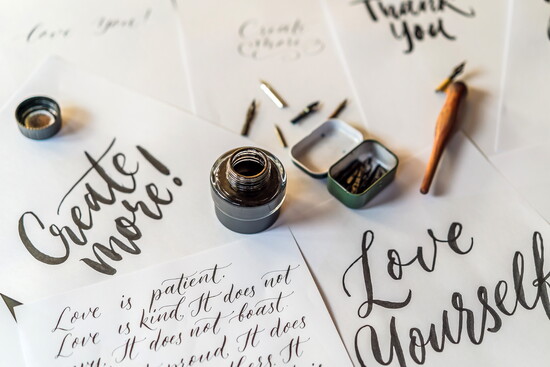 love you!
Create
more
Thank
You
Create
more!
Love
Yourself
Love is patient.
Love is kind. It does not
It does not boast.
proud. It does
It